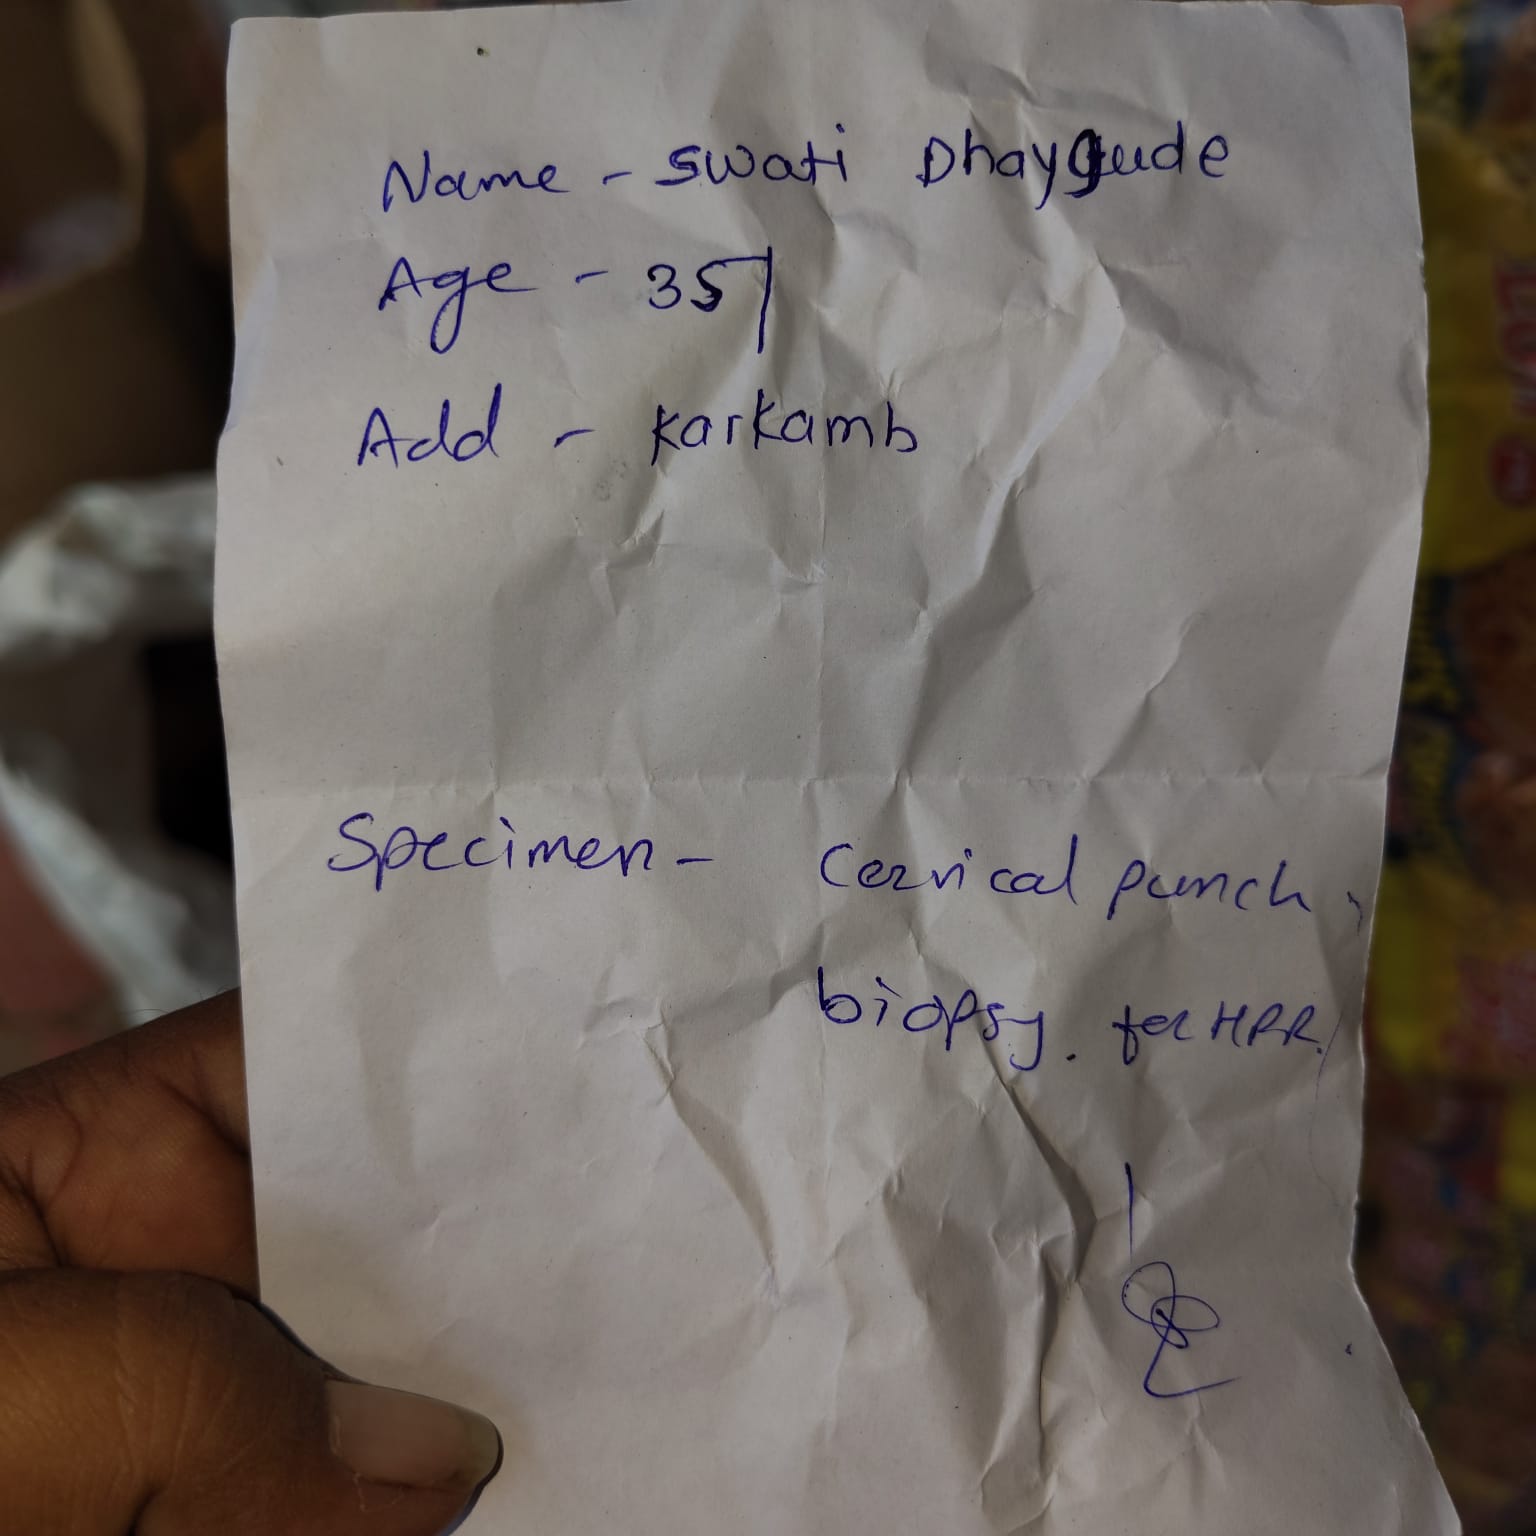 Name - Swati Dhaygude
Age - 35
Add - Karkamb
Specimen - Cervical punch
biopsy. for HPR.